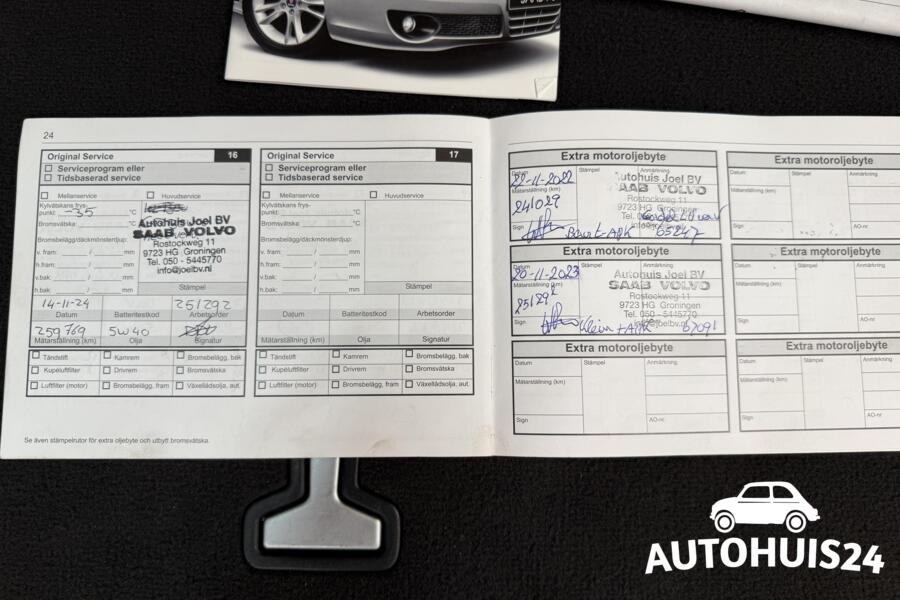 SAAB
24
Original Service 16
Serviceprogram eller
Tidsbaserad service
Mellanservice Huvudservice
Kylvätskans frys-
punkt: -35 °C
Bromsvätska: °C
Bromsbelägg/däckmönsterdjup:
v. fram: / mm
h.fram: / mm
v.bak: / mm
h.bak: / mm
Autohuis Joel BV
SAAB VOLVO
Rostockweg 11
9723 HG Groningen
Tel. 050 - 5445770
info@joelbv.nl
Stämpel
14-11-24 251292
Datum Batteritestkod Arbetsorder
259769 5W40
Mätarställning (km) Olja Signatur
Tändstift Kamrem Bromsbelägg, bak
Kupéluftfilter Drivrem Bromsvätska
Luftfilter (motor) Bromsbelägg, fram Växellådsolja, aut.
Se även stämpelrutor för extra oljebyte och utbytt bromsvätska.
Original Service 17
Serviceprogram eller
Tidsbaserad service
Mellanservice Huvudservice
Kylvätskans frys-
punkt: °C
Bromsvätska: °C
Bromsbelägg/däckmönsterdjup:
v. fram: / mm
h.fram: / mm
v.bak: / mm
h.bak: / mm
Stämpel
Datum Batteritestkod Arbetsorder
Mätarställning (km) Olja Signatur
Tändstift Kamrem Bromsbelägg, bak
Kupéluftfilter Drivrem Bromsvätska
Luftfilter (motor) Bromsbelägg, fram Växellådsolja, aut.
Extra motoroljebyte
Datum Stämpel Anmärkning
22-11-2022
Mätarställning (km)
241029
Autohuis Joel BV
SAAB VOLVO
Rostockweg 11
9723 HG Groningen
Sign Beurt+APK 65247
Extra motoroljebyte
Datum Stämpel Anmärkning
20-11-2023
Mätarställning (km)
251292
Autohuis Joel BV
SAAB VOLVO
Rostockweg 11
9723 HG Groningen
Tel. 050 - 5445770
info@joelbv.nl
Sign Klein+APK 67091
Extra motoroljebyte
Datum Stämpel Anmärkning
Mätarställning (km)
Sign AO-nr
Extra motoroljebyte
Datum Stämpel Anmärkning
Mätarställning (km)
Sign AO-nr
Extra motoroljebyte
Datum Stämpel Anmärkning
Mätarställning (km)
Sign AO-nr
Extra motoroljebyte
Datum Stämpel Anmärkning
Mätarställning (km)
Sign AO-nr
AUTOHUIS24